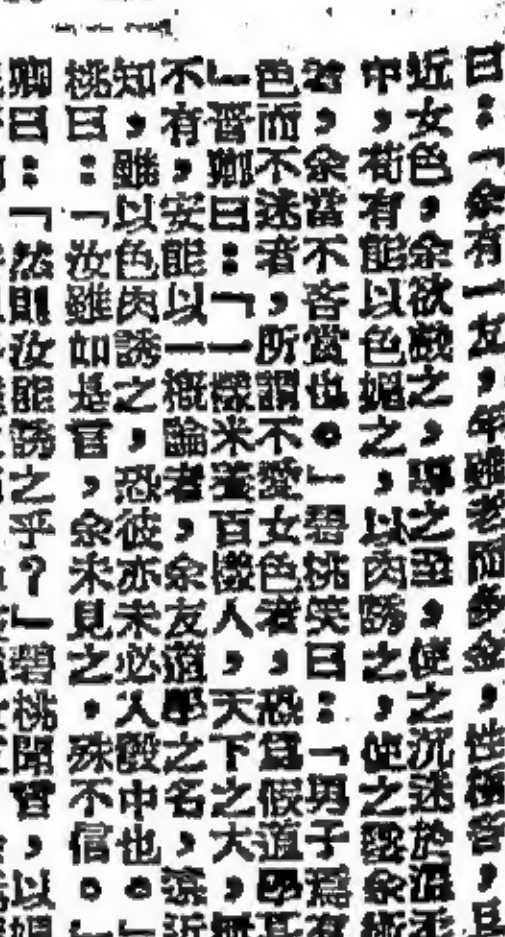 曰：「余有一友，年雖老而多金，性極吝，且
近女色，余欲戲之，導之至，使之沉迷於溫柔
中，苟有能以色媚之，以肉誘之，使之墮余術
者，余當不吝賞也。」碧桃笑曰：「男子焉有
色而不迷者，所謂不愛女色者，恐為假道學耳
」晋卿曰：「一樣米養百樣人，天下之大，無
不有，安能以一概論者，余友道學之名，遠近
知，雖以色肉誘之，恐彼亦未必入彀中也。」
桃曰：「汝雖如是言，余未見之，殊不信。」
卿曰：「然則汝能誘之乎？」碧桃聞言，以媚